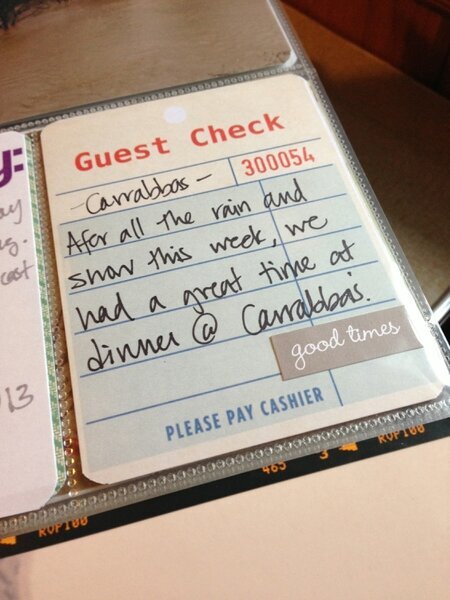 Guest Check
300054
- Carrabbas -
Afer all the rain and
snow this week, we
had a great time at
dinner @ Carrabba's.
good times
PLEASE PAY CASHIER
y:
ay
g.
cost
13
RVP100
465 3
RVP100